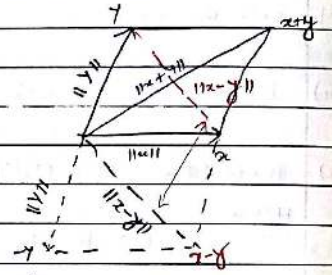 y
x+y
||y||
||x+y||
||x-y||
||x||
x
||y||
||x-y||
-y
x-y